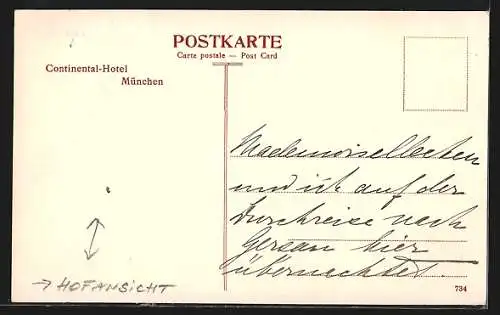 POSTKARTE
Carte postale — Post Card
Continental-Hotel
München
und ich auf der
Durchreise nach
hier
übernachtet.
→ HOFANSICHT
734